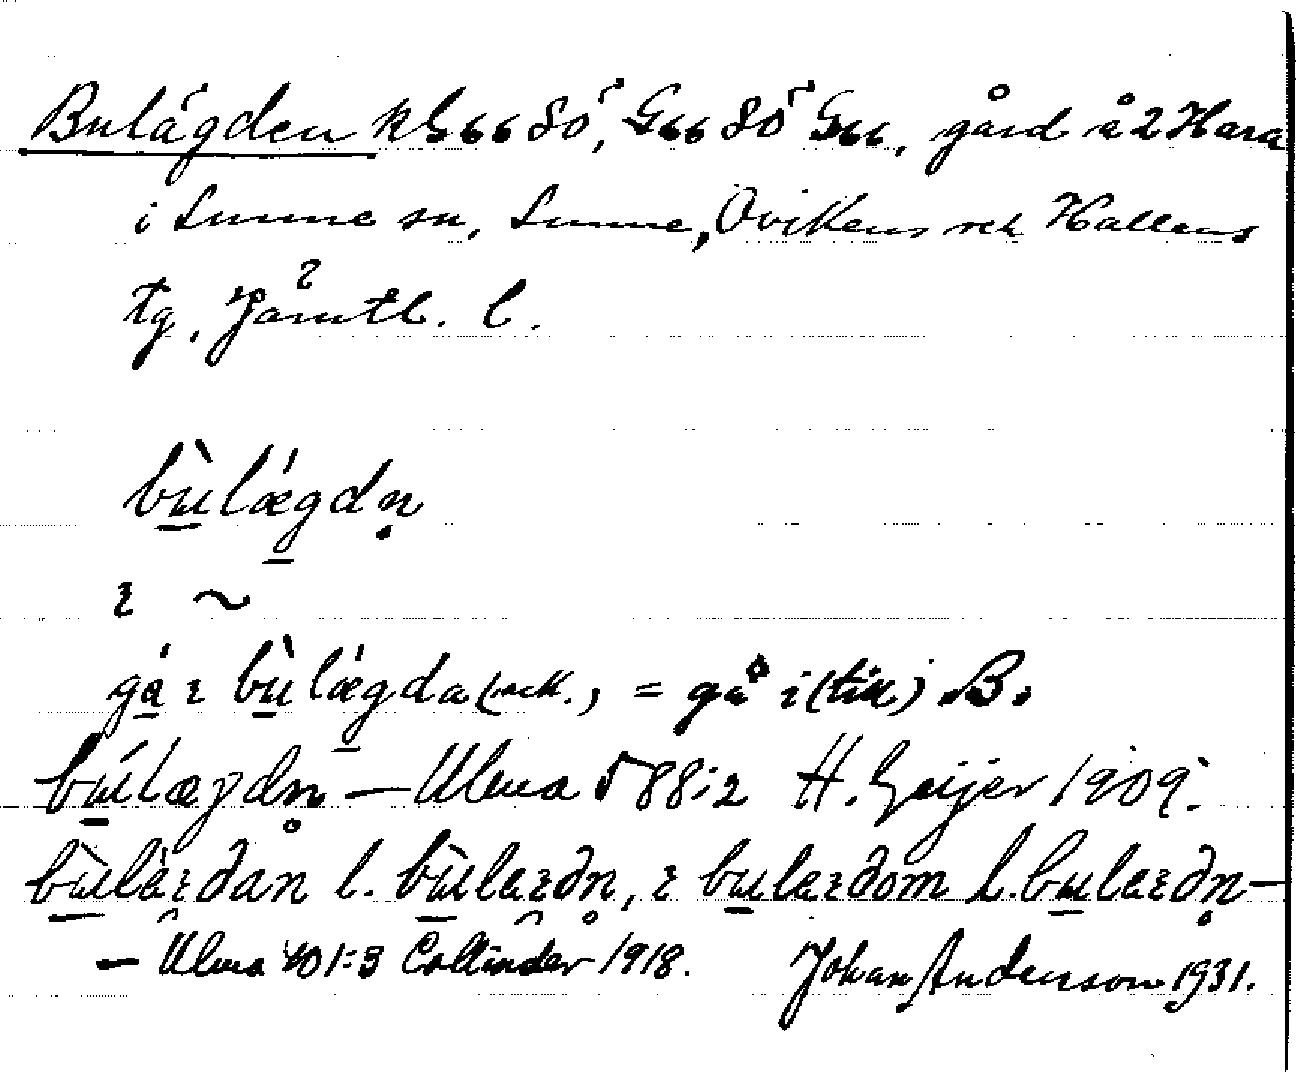 Bulägden kG66 80, G66 80 G66, gård å 2 Hara
i Sunne sn, Sunne, Ovikens och Hallens
tg, Jämtl. l.
bùlǽgdn̥
ɪ ~
gá ɪ bùlǽgda (ack.) = gå i (till) B.
búlægdn̥ — Ulma 588:2 H. Geijer 1909.
l. bùlaɪðn̥, ɪ bulaɪðom l. bulaɪðn̥ —
— Ulma 401:3 Collinder 1918. Johan Anderson 1931.